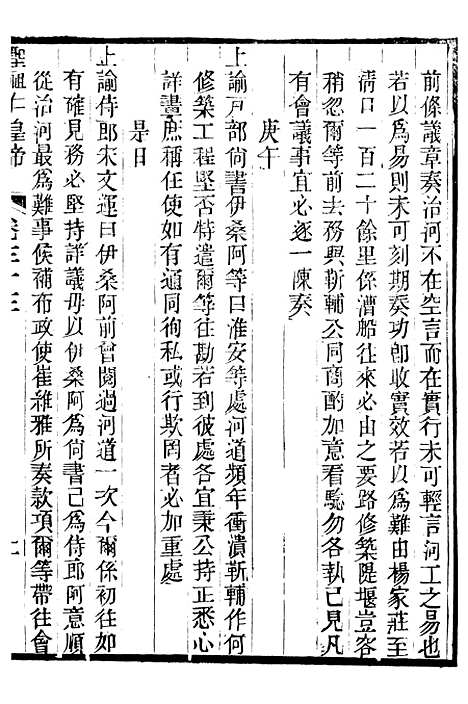 前條議章奏治河不在空言而在實行未可輕言河工之易也
若以爲易則未可刻期奏功卽收實效若以爲難由楊家莊至
淸口一百二十餘里係漕船往來必由之要路修築隄堰豈容
稍忽爾等前去務與靳輔公同商酌加意看驗勿各執己見凡
有會議事宜必逐一陳奏
庚午
上諭戸部尙書伊桑阿等曰淮安等處河道頻年衝潰靳輔作何
修築工程堅否特遣爾等往勘若到彼處各宜秉公持正悉心
詳畫庶稱任使如有通同徇私或行欺罔者必加重處
是日
上諭侍郞宋文運曰伊桑阿前曾閱過河道一次今爾係初往如
有確見務必堅持詳議毋以伊桑阿爲尙書己爲侍郞阿意順
從治河最爲難事候補布政使崔維雅所奏款項爾等帶往會
聖祖仁皇帝 卷三十三